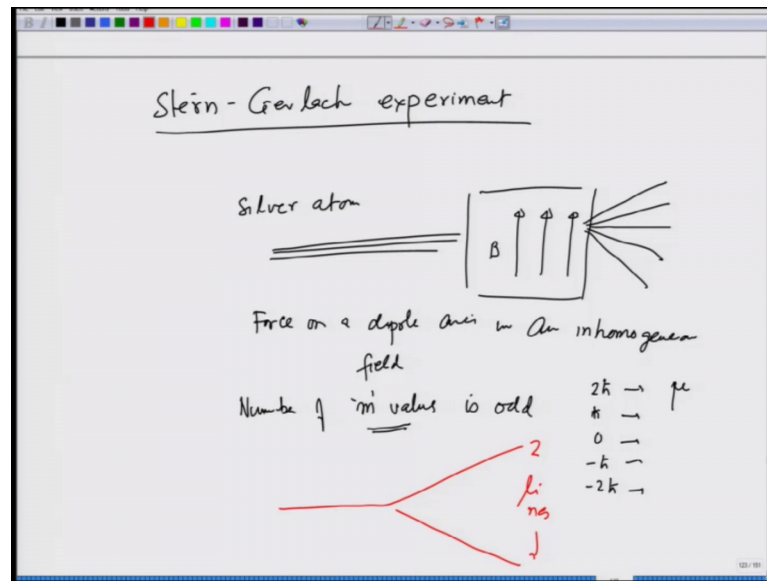 Stern-Gerlach experiment
Silver atom
B
Force on a dipole in an inhomogenen
field
Number of 'm' values is odd
2ħ → μ
ħ →
0 →
-ħ -
-2ħ →
2
li
nes
123/151